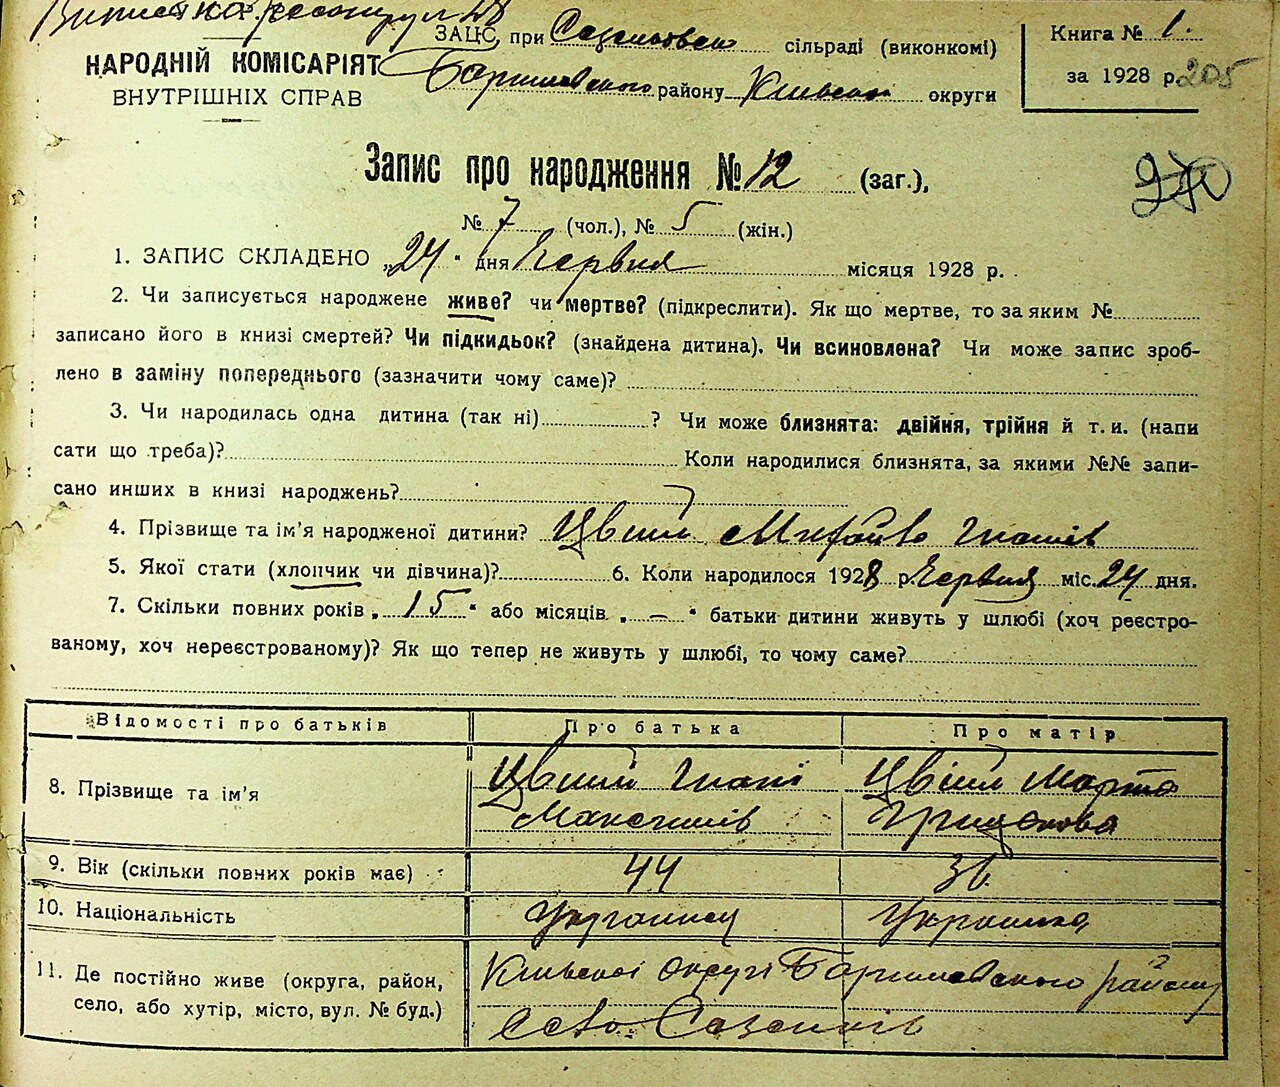 ЗАЦС при Сазонівськ сільраді (виконкомі)
НАРОДНІЙ КОМІСАРІЯТ
ВНУТРІШНІХ СПРАВ
Баришівського району Київської округи
Книга № 1.
за 1928 р. 205
270
Запис про народження № 12 (заг.),
№ 7 (чол.), № 5 (жін.)
1. ЗАПИС СКЛАДЕНО „24 " дня Червня місяця 1928 р.
2. Чи записується народжене живе? чи мертве? (підкреслити). Як що мертве, то за яким №
записано його в книзі смертей? Чи підкидьок? (знайдена дитина). Чи всиновлена? Чи може запис зроб-
лено в заміну попереднього (зазначити чому саме)?
3. Чи народилась одна дитина (так ні) ? Чи може близнята: двійня, трійня й т. и. (напи
сати що треба)? Коли народилися близнята, за якими №№ запи-
сано инших в книзі народжень?
4. Прізвище та ім'я народженої дитини? Цвіній Михайло Гнатів
5. Якої стати (хлопчик чи дівчина)? 6. Коли народилося 1928 р. Червня міс. 24 дня.
7. Скільки повних років „ 15 " або місяців „ — " батьки дитини живуть у шлюбі (хоч реєстро-
ваному, хоч нереєстрованому)? Як що тепер не живуть у шлюбі, то чому саме?
Відомості про батьків Про батька Про матір
8. Прізвище та ім'я Марта
Максимів Грицькова
9. Вік (скільки повних років має) 44 36
10. Національність Українец Українка
11. Де постійно живе (округа, район,
село, або хутір, місто, вул. № буд.)
Київської округі Баришівського району
село Сазонків